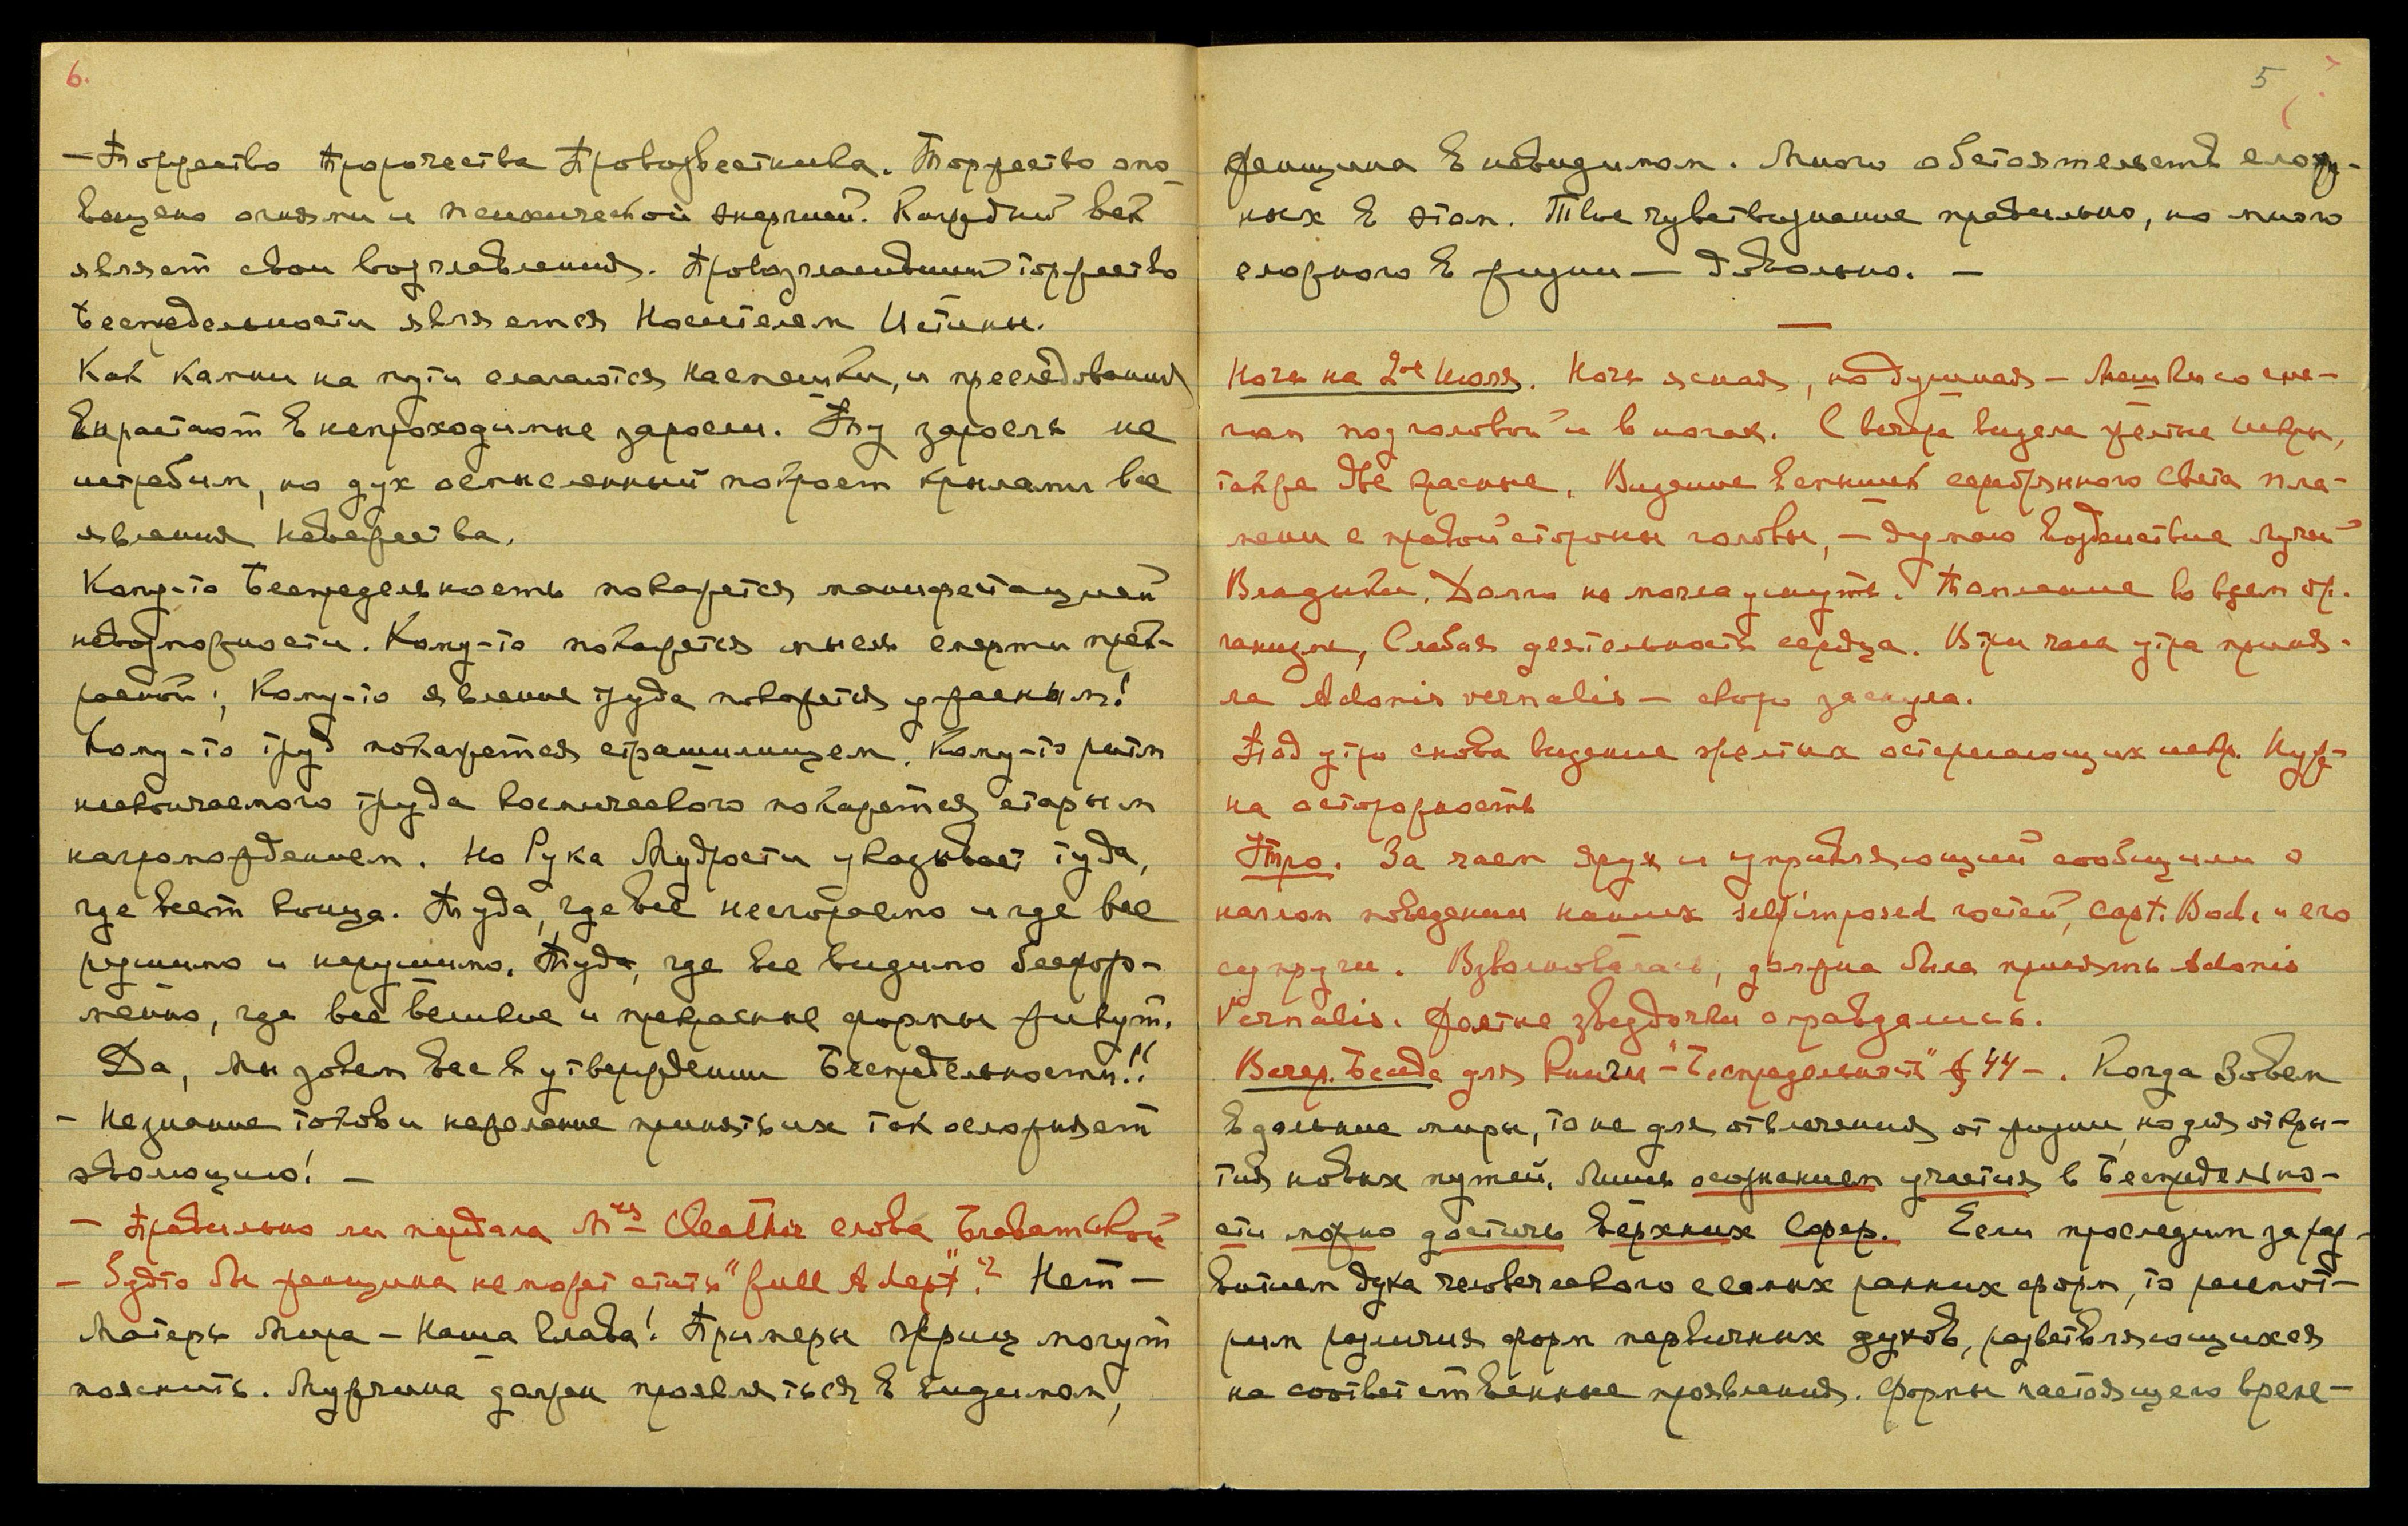 6.
— Торжество Пророчества Провозвестника. Торжество опо-
вещено огнями и психической энергией. Каждый век
являет свои возглавления. Провозгласивший торжество
Беспредельности является Носителем Истины.
Как камни на пути слагаются насмешки, и преследования
вырастают в непроходимые заросли. Ту заросль не
истребим, но дух осмысленный покроет крылами все
явления невежества.
Кому-то Беспредельность покажется манифестацией
невозможности. Кому-то покажется мысль смерти прек-
расной; Кому-то явление труда покажется ужасным!
Кому-то труд покажется страшилищем. Кому-то ритм
нескончаемого труда космического покажется старым
нагромождением. Но Рука Мудрости указывает туда,
где нет конца. Туда, где всё несгораемо и где все
рушимо и нерушимо. Туда, где все видимо бесфор-
менно, где все великие и прекрасные формы живут.
Да, мы зовем всех к утверждению Беспредельности!!
- Незнание токов и нежелание принять их так осложняет
эволюцию! —
— Правильно ли передала Mrs Cleather слова Блаватской
— будто бы женщина не может стать "full Adept"? Нет —
Матерь Мира — Наша Слава! Примеры жриц могут
пояснить. Мужчина должен проявляться в видимом,
5
женщина в невидимом. Много обстоятельств слож-
ных в этом. Твое чувствознание правильно, но много
сложного в жизни — довольно. —
Ночь на 2ое Июля. Ночь ясная, но душная — Мешки со сне-
гом под головой и в ногах. С вечера видела желтые искры,
также две красные. Видение вспышек серебряного света пла-
мени с правой стороны головы, — думаю воздействие лучей
Владыки. Долго не могла уснуть. Томление во всем ор-
ганизме, Слабая деятельность сердца. В три часа утра приня-
ла Adonis vernalis — скоро заснула.
Под утро снова видение желтых остерегающих искр. Нуж-
на осторожность
Утро. За чаем Яруя и управляющий сообщили о
наглом поведении наших self imposed гостей, Capt. Bod. и его
супруги. Взволновалась, должна была принять Adonis
Vernalis. Желтые звездочки оправдались.
Вечер. Беседа для Книги — "Беспредельность" § 44 —. Когда Зовем
в дальние миры, то не для отвлечения от жизни, но для откры-
тия новых путей. Лишь осознанием участия в Беспредельно-
сти можно достичь Верхних Сфер. Если проследим за раз-
витием духа человеческого с самых ранних форм, то усмот-
рим различия форм первичных духов, разветвляющихся
на соответственные проявления. Формы настоящего време-